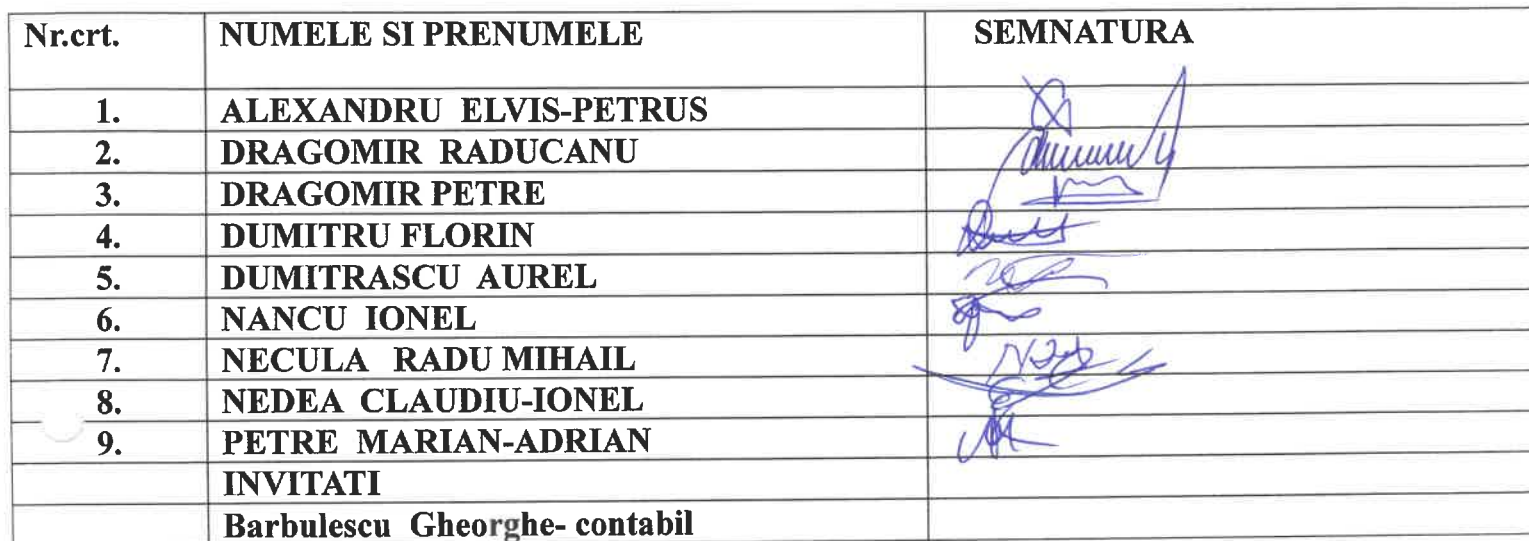 Nr.crt. NUMELE SI PRENUMELE SEMNATURA
1. ALEXANDRU ELVIS-PETRUS
2. DRAGOMIR RADUCANU
3. DRAGOMIR PETRE
4. DUMITRU FLORIN
5. DUMITRASCU AUREL
6. NANCU IONEL
7. NECULA RADU MIHAIL
8. NEDEA CLAUDIU-IONEL
9. PETRE MARIAN-ADRIAN
INVITATI
Barbulescu Gheorghe- contabil